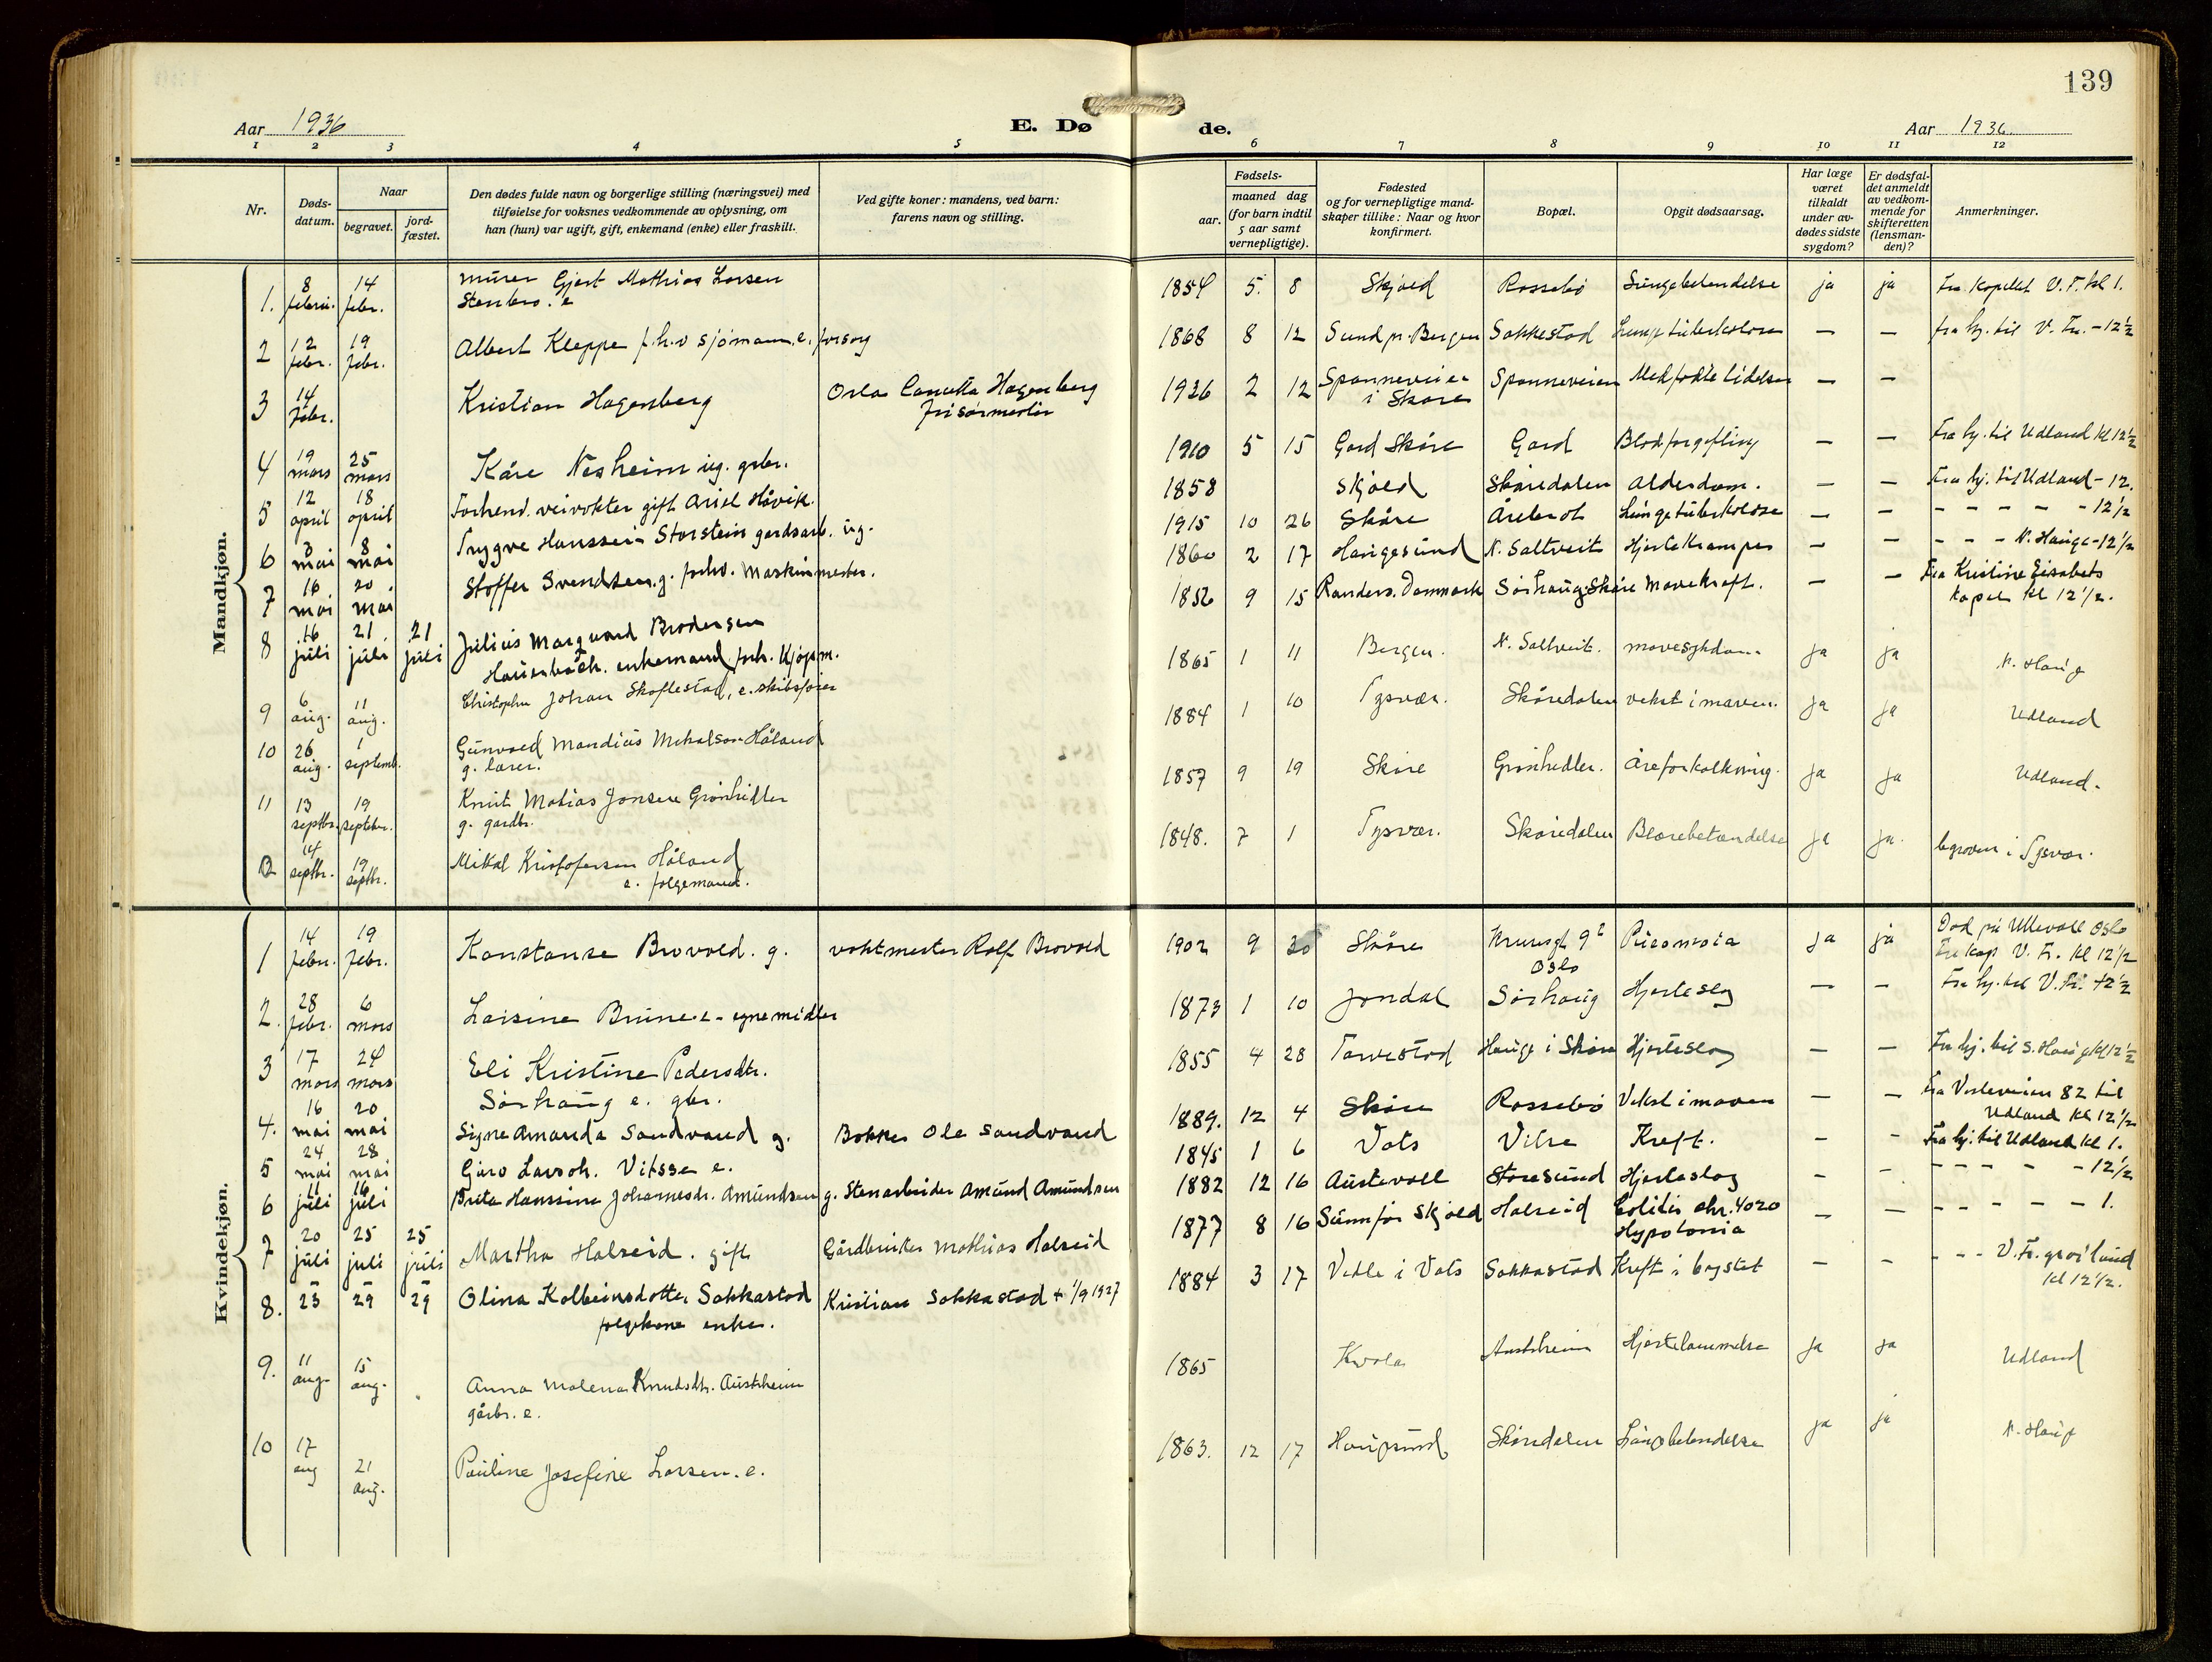 139
Aar 1936
E. Dø
de.
Aar 1936.
1 2 3 4 5 6 7 8 9 10 11 12
Nr.
Døds-
datum.
Naar
begravet.
jord-
fæstet.
Den dødes fulde navn og borgerlige stilling (næringsvei) med
tilføielse for voksnes vedkommende av oplysning, om
han (hun) var ugift, gift, enkemand (enke) eller fraskilt.
Ved gifte koner: mandens, ved barn:
farens navn og stilling.
Fødsels-
aar.
maaned dag
(for barn indtil
5 aar samt
vernepligtige).
Fødested
og for vernepligtige mand-
skaper tillike: Naar og hvor
konfirmert.
Bopæl.
Opgit dødsaarsag.
Har læge
været
tilkaldt
under av-
dødes sidste
sygdom?
Er dødsfal-
det anmeldt
av vedkom-
mende for
skifteretten
(lensman-
den)?
Anmerkninger.
Mandkjøn.
1. 8 februar. 14 febr. murer Gjert Mathias Larsen
Stenbro. e 1854 5. 8 Skjold Rossebø Lungebetendelse ja ja Fra kapellet V. F. kl 1.
2 12 febr. 19 febr. Albert Kleppe f.h.v sjømann. e. forsorg 1868 8 12 Sund pr. Bergen Sakkestad Lungetuberkolose — — fra hj. til V. Fr. - 12½
3 14 febr. Kristian Hagenberg Orla Canutta Hagenberg
frisørmester 1936 2 12 Spanneveien
i Skåre Spanneveien Medfødte lidelser — —
4 19 mars 25 mars Kåre Nesheim ug. grbr. 1910 5 15 Gard Skåre Gard Blodforgiftning — — Fra hj. til Udland kl 12½
5 12 april 18 april Forhenv. veivokter gift Ariel Håvik. 1858 Skjold Skåredalen Alderdom. — — Fra hj. til Udland - 12.
6 3 mai 8 mai Trygve Hanssen Storstein gardsarb. ug. 1915 10 26 Skåre Årebrot Lungetuberkolose — — - - - - - 12½
7 16 mai 20 mai Stoffer Svendsen. g. forhv. Maskinmester. 1860 2 17 Haugesund N. Saltveit Hjertekramper — — - - - N. Hauge - 12½
8 16 juli 21 juli 21 juli Julius Marqvard Brodersen
Hausenbach. enkemand forh. kjøpm. 1852 9 15 Randers. Danmark Sørhaug Skåre Mavekraft. — — Fra Kristine Elisabets
kapel kl 12½.
9 6 aug. 11 aug. Christopher Johan Skoflestad, e. skibsfører 1865 1 11 Bergen. N. Saltveit. mavesykdom ja ja N. Haug
10 26 aug. 1 septemb. Gunvald Mandius Mikalsen Håland
g. lærer. 1884 1 10 Tysvær. Skåredalen vekst i maven. ja ja Udland
11 13 septbr. 19 septebr. Knut Matias Jonsen Grønhidler
g. gardbr. 1857 9 19 Skåre Grønhedler. Åreforkalkning. ja ja Udland.
12 14 septbr. 19 septbr. Mikal Kristofersen Håland
e. følgemand. 1848. 7 1 Tysvær. Skåredalen Blærebetændelse ja ja. begraven i Tysvær.
Kvindekjøn.
1 14 febr. 19 febr. Konstanse Brovold. g. vaktmester Rolf Brovold 1902 9 20 Skåre 9²
Oslo ja ja Død på Ullevoll Oslo
Fra kap V. Fr. kl 12½
2. 28 febr. 6 mars Laisine Brune e - egne midler 1873 1 10 Jondal Sørhaug Hjerteslag — — Fra hj. til V. Fr. 12½
3 17 mars 24 mars Eli Kristine Pedersdtr.
Sørhaug e. gbr. 1855 4 28 Torvestad Hauge i Skåre Hjerteslag — — Fra hj. til S. Haug kl 12½
4. 16 mai 20 mai Signe Amanda Sandvand g. Bøkker Ole Sandvand 1889. 12 4 Skåre Rossebø Vekst i maven — — Fra Vesleveien 82 til
Udland kl 12½
5 24 mai 28 mai Guro Larsdh. Vitsøe e. 1845 1 6 Vats Kreft. — - Fra hj. til Udland kl 1.
6 11 juli 16 juli Brita Hanssine Johannesdr. Amundsen g. Stenarbeider Amund Amundsen 1882 12 16 Austevoll Storesund Hjerteslag — - - - - - - 12½
7 20 juli 25 juli 25 juli Martha Halseid. gift Gårdbruker Mathias Halseid 1877 8 16 Sunnfør Skjold Halseid Colitis chr. 4020
Hypotonia — — - - - - - 1.
8. 23 29 29 Olina Kolbeinsdotter Sakkastad
følgekone enke. Kristian Sakkastad + 1/9 1927 1884 3 17 Vedle i Vats Sakkastad Kreft i brystet — - - - - V. Fr. gravlund
kl 12½.
9. 11 aug. 15 aug. Anna Malena Knudsdtr. Austrheim
gårbr. e. 1865 Kvala Austrheim Hjertelammelse ja ja Udland
10 17 aug 21 aug. Pauline Josefine Larsen. e. 1863. 12 17 Haugesund Skåredalen Lungebetendelse ja ja N. Haug